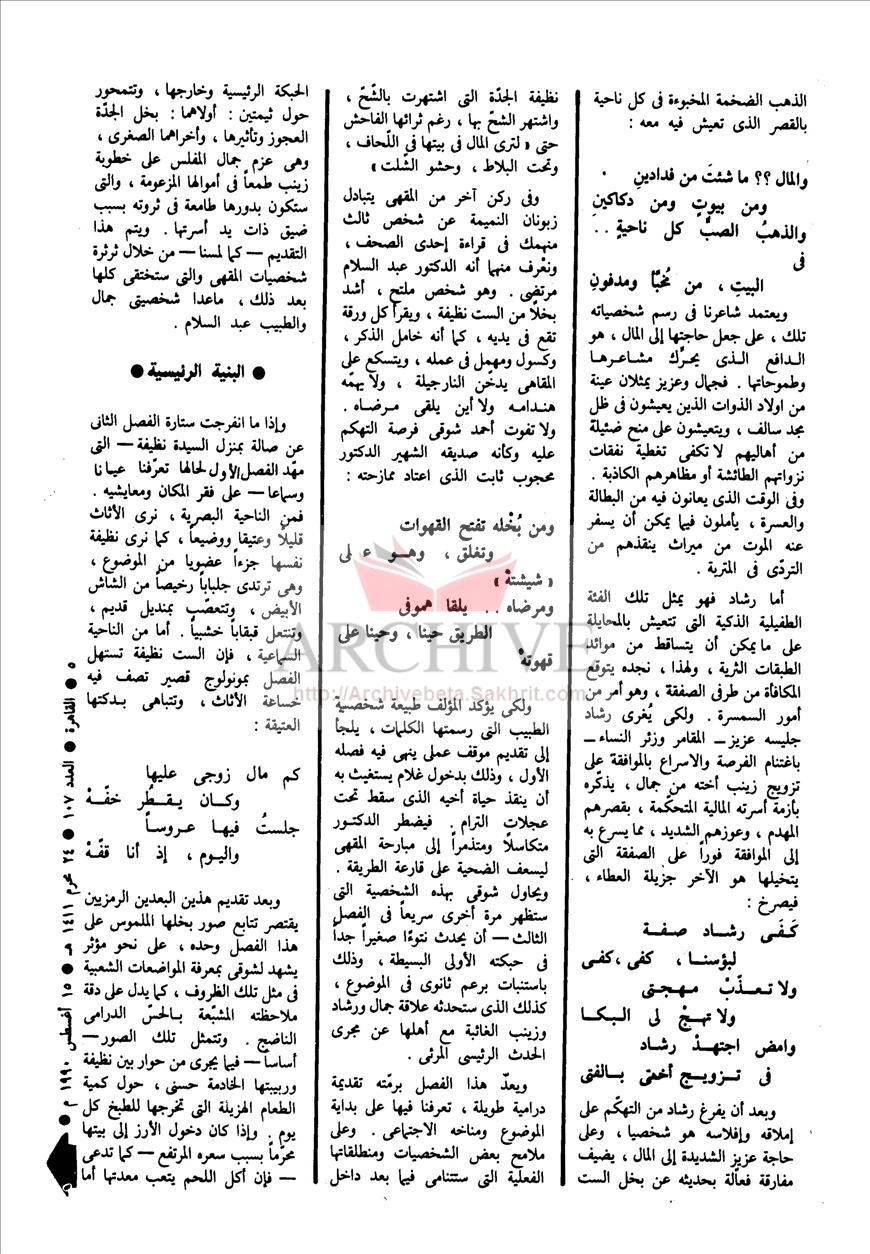 الذهب الضخمة المخبوءة فى كل ناحية
بالقصر الذى تعيش فيه معه :
والمال ؟؟ ما شئتَ من فدادينِ .
ومن بيوتٍ ومن دكاكينِ
والذهبُ الصبُّ كل ناحيةٍ ..
فى
البيتِ ، من مُخبَّأ ومدفونِ
ويعتمد شاعرنا فى رسم شخصياته
تلك ، على جعل حاجتها إلى المال ، هو
الدافع الذى يحرّك مشاعرها
وطموحاتها . فجمال وعزيز يمثلان عينة
من اولاد الذوات الذين يعيشون فى ظل
مجد سالف ، ويتعيشون على منح ضئيلة
من أهاليهم لا تكفى تغطية نفقات
نزواتهم الطائشة أو مظاهرهم الكاذبة .
وفى الوقت الذى يعانون فيه من البطالة
والعسرة ، يأملون فيما يمكن أن يسفر
عنه الموت من ميراث ينقذهم من
التردّى فى المتربة .
أما رشاد فهو يمثل تلك الفئة
الطفيلية الذكية التى تتعيش بالمحايلة
على ما يمكن أن يتساقط من موائد
الطبقات الثرية ، ولهذا ، نجده يتوقع
المكافأة من طرفى الصفقة ، وهو أمر من
أمور السمسرة . ولكى يُغرى رشاد
جليسه عزيز ــ المقامر وزئر النساء ــ
باغتنام الفرصة والاسراع بالموافقة على
تزويج زينب أخته من جمال ، يذكّره
بأزمة أسرته المالية المتحكّمة ، بقصرهم
المهدم ، وعوزهم الشديد ، مما يسرع به
إلى الموافقة فوراً على الصفقة التى
يتخيلها هو الآخر جزيلة العطاء ،
فيصرخ :
كَفَى رشاد صفة
لبؤسنا ، كفى ، كفى
ولا تعذّبْ مهجتى
ولا تهجْ لى البكا
وامض اجتهدْ رشاد
فى تزويج أختى بالفتى
وبعد أن يفرغ رشاد من التهكّم على
إملاقه وإفلاسه هو شخصيا ، وعلى
حاجة عزيز الشديدة إلى المال ، يضيف
مفارقة فعالّة بحديثه عن بخل الست
نظيفة الجدّة التى اشتهرت بالشّحّ ،
واشتهر الشحّ بها ، رغم ثرائها الفاحش
حتى « لترى المال فى بيتها فى اللّحاف ،
وتحت البلاط ، وحشو الشّلت »
وفى ركن آخر من المقهى يتبادل
زبونان النميمة عن شخص ثالث
منهمك فى قراءة إحدى الصحف ،
ونعْرف منهما أنه الدكتور عبد السلام
مرتضى . وهو شخص ملتح ، أشد
بخلاً من الست نظيفة ، ويقرأ كل ورقة
تقع فى يديه ، كما أنه خامل الذكر ،
وكسول ومهمل فى عمله ، ويتسكع على
المقاهى يدخن النارجيلة ، ولا يهمّه
هندامه ولا أين يلقى مرضاه .
ولا تفوت أحمد شوقى فرصة التهكم
عليه وكأنه صديقه الشهير الدكتور
محجوب ثابت الذى اعتاد ممازحته :
ومن بُخْله تفتح القهوات
وتغلق ، وهو على
« شيشتهْ »
ومرضاه .. يلقاهموفى
الطريق حينا ، وحينا على
قهوتهْ
ولكى يؤكد المؤلف طبيعة شخصية
الطبيب التى رسمتها الكلمات ، يلجأ
إلى تقديم موقف عملى ينهى فيه فصله
الأول ، وذلك بدخول غلام يستغيث به
أن ينقذ حياة أخيه الذى سقط تحت
عجلات الترام . فيضطر الدكتور
متكاسلاً ومتذمراً إلى مبارحة المقهى
ليسعف الضحية على قارعة الطريقة .
ويحاول شوقى بهذه الشخصية التى
ستظهر مرة أخرى سريعاً فى الفصل
الثالث ــ أن يحدث نتوءًا صغيراً جداً
فى حبكته الأولى البسيطة ، وذلك
باستنبات برعم ثانوى فى الموضوع ،
كذلك الذى ستحدثه علاقة جمال ورشاد
وزينب الغائبة مع أهلها عن مجرى
الحدث الرئيسى المرئى .
ويعدّ هذا الفصل برمّته تقديمة
درامية طويلة ، تعرفنا فيها على بداية
الموضوع ومناخه الاجتماعى . وعلى
ملامح بعض الشخصيات ومنطلقاتها
الفعلية التى ستتنامى فيما بعد داخل
الحبكة الرئيسية وخارجها ، وتتمحور
حول ثيمتين : أولاهما : بخل الجدّة
العجوز وتأثيرها ، وأخراهما الصغرى ،
وهى عزم جمال المفلس على خطوبة
زينب طمعاً فى أموالها المزعومة ، والتى
ستكون بدورها طامعة فى ثروته بسبب
ضيق ذات يد أسرتها . ويتم هذا
التقديم ــ كما لمسنا ــ من خلال ثرثرة
شخصيات المقهى والتى ستختفى كلها
بعد ذلك ، ماعدا شخصيتى جمال
والطبيب عبد السلام .
● البنية الرئيسية ●
وإذا ما انفرجت ستارة الفصل الثانى
عن صالة بمنزل السيدة نظيفة ــ التى
مهّد الفصل الأول لحالها تعرّفنا عيانا
وسماعا ــ على فقر المكان ومعايشيه .
فمن الناحية البصرية ، نرى الأثاث
قليلاً وعتيقا ووضيعاً ، كما نرى نظيفة
نفسها جزءاً عضويا من الموضوع ،
وهى ترتدى جلباباً رخيصاً من الشاش
الأبيض ، وتتعصّب بمنديل قديم ،
وتنتعل قبقاباً خشبياً . أما من الناحية
السماعية ، فإن الست نظيفة تستهل
الفصل بمونولوج قصير تصف فيه
خساعة الأثاث ، وتتباهى بدكتها
العتيقة :
كم مال زوجى عليها
وكان يقطُر خفّهْ
جلستُ فيها عروساً
واليوم ، إذ أنا قفّهْ
وبعد تقديم هذين البعدين الرمزيين
يقتصر تتابع صور بخلها الملموس على
هذا الفصل وحده ، على نحو مؤثر
يشهد لشوقى بمعرفة المواضعات الشعبية
فى مثل تلك الظروف ، كما يدل على دقة
ملاحظته المشبّعة بالحسّ الدرامى
الناضج . وتتمثل تلك الصور ــ
أساساً ــ فيما يجرى من حوار بين نظيفة
وربيبتها الخادمة حسنى ، حول كمية
الطعام الهزيلة التى تخرجها للطبخ كل
يوم . وإذا كان دخول الأرز إلى بيتها
محرّماً بسبب سعره المرتفع ــ كما تدعى
ــ فإن أكل اللحم يتعب معدتها أما
٥ ● القاهرة ● العدد ١٠٧ ● ٢٤ محرم ١٤١١ هـ ● ١٥ أغسطس ١٩٩٠ م ●
ARCHIVE
http://Archivebeta.Sakhrit.com